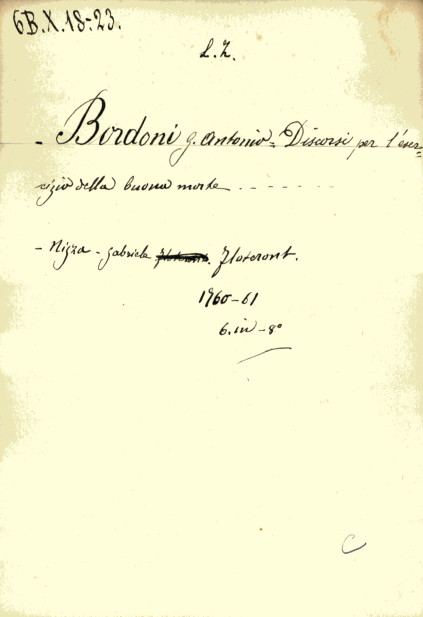 6B.X.18-23.
L.Z.
- Bordoni g. Antonio = Discorsi per l'eser-
cizio della buona morte - - - - - - -
- Nizza - Gabriele Floteront.
1760-61
6. in - 8°
C